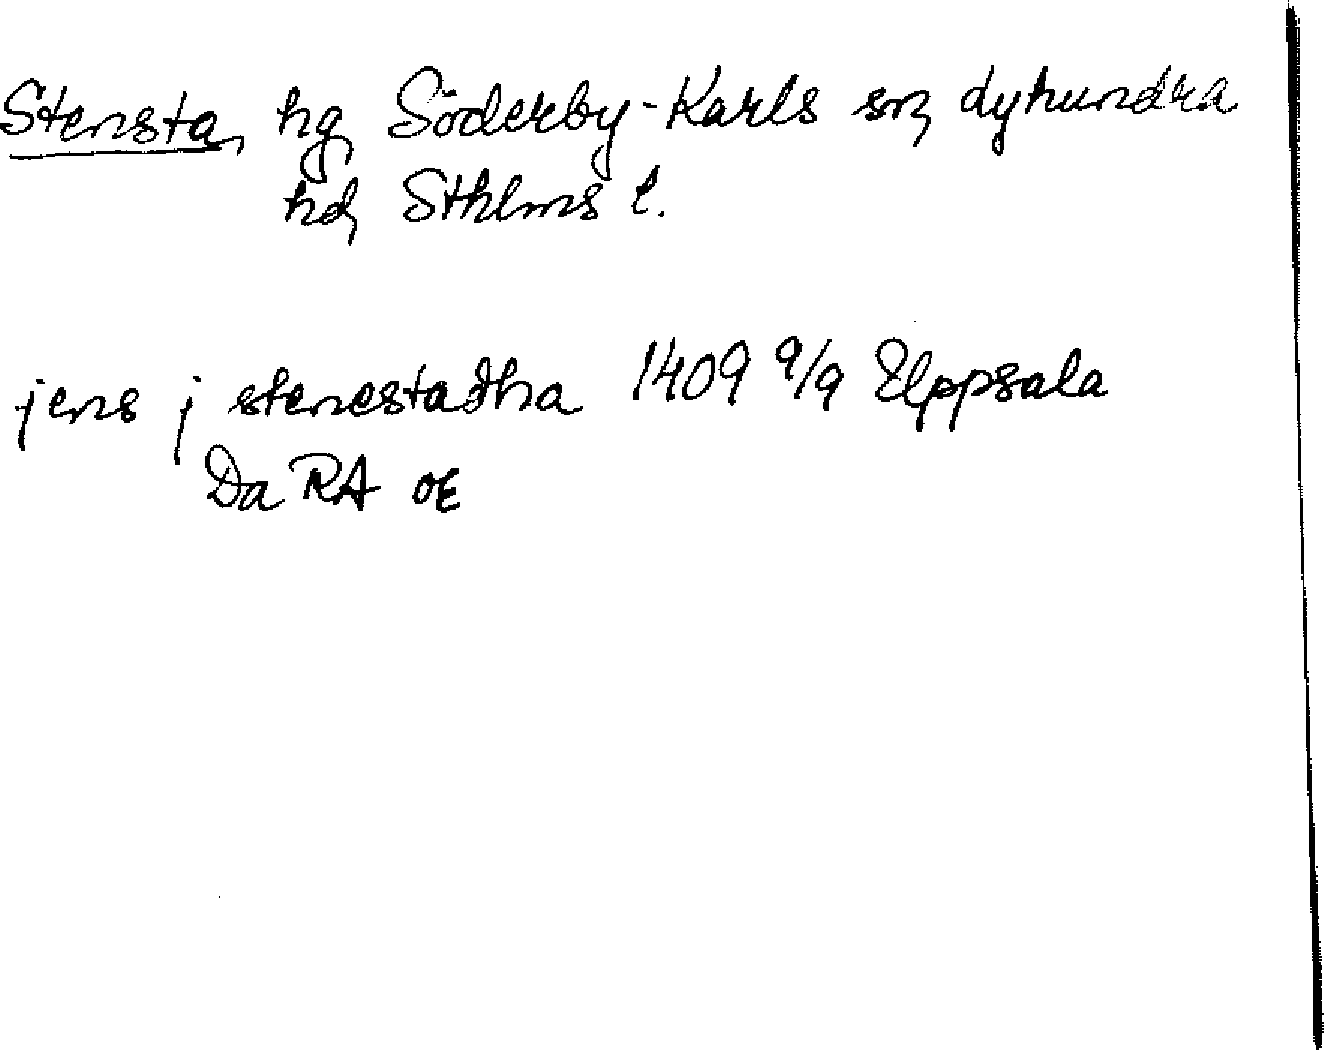 Stensta, hg, Söderby-Karls sn, Lyhundra
hd, Sthlms l.
jens j stenestadha 1409 9/9 Uppsala
Da RA OE